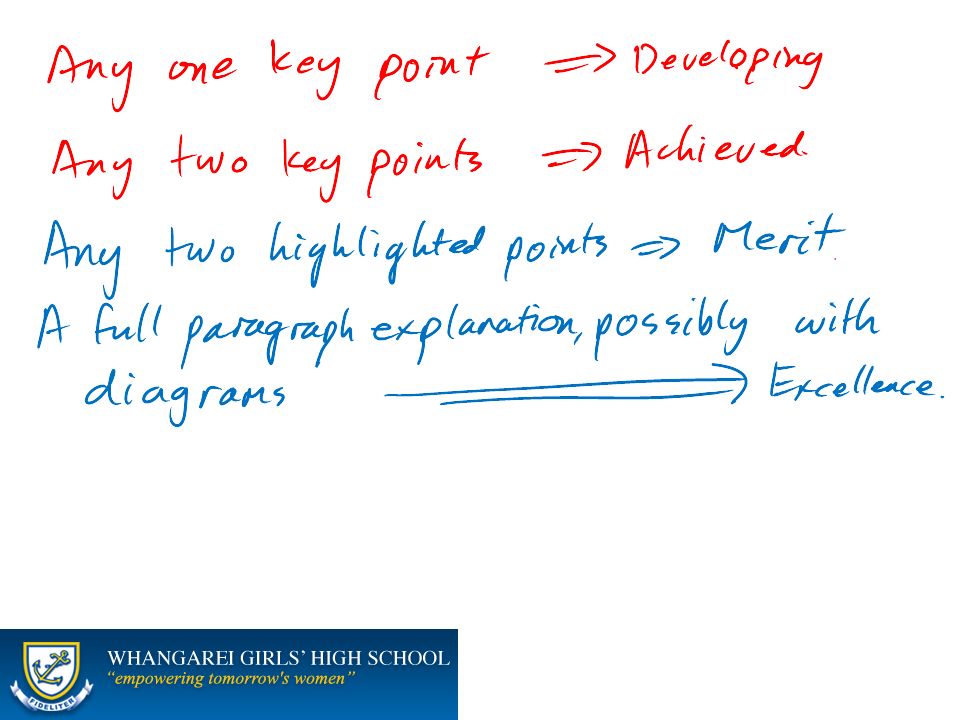 Any one key point => Developing
Any two key points => Achieved.
Any two highlighted points => Merit.
A full paragraph explanation, possibly with
diagrams => Excellence.
WHANGAREI GIRLS' HIGH SCHOOL
"empowering tomorrow's women"
FIDELITER